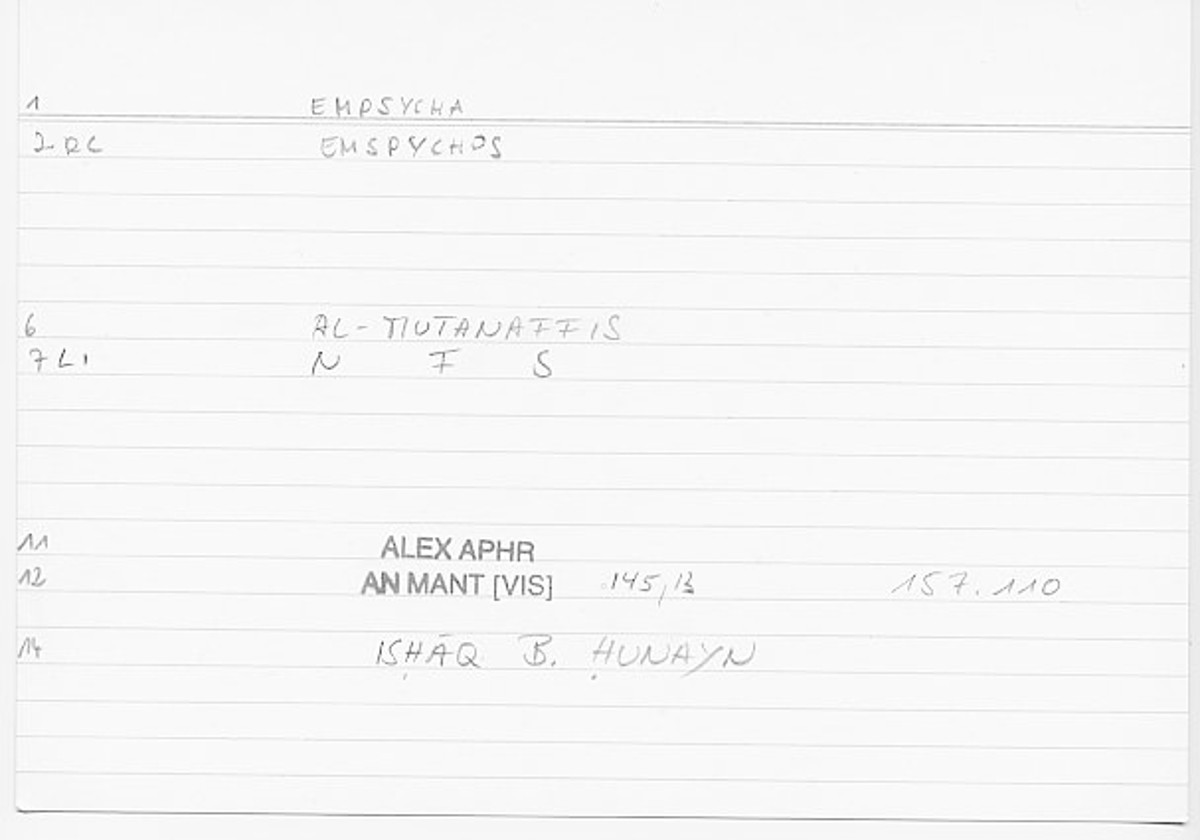 1 EMPSYCHA
2 RC EMSPYCHOS
6 AL-MUTANAFFIS
7 LI N F S
11 ALEX APHR
12 AN MANT [VIS] 145,13 157.110
14 ISḤĀQ B. ḤUNAYN